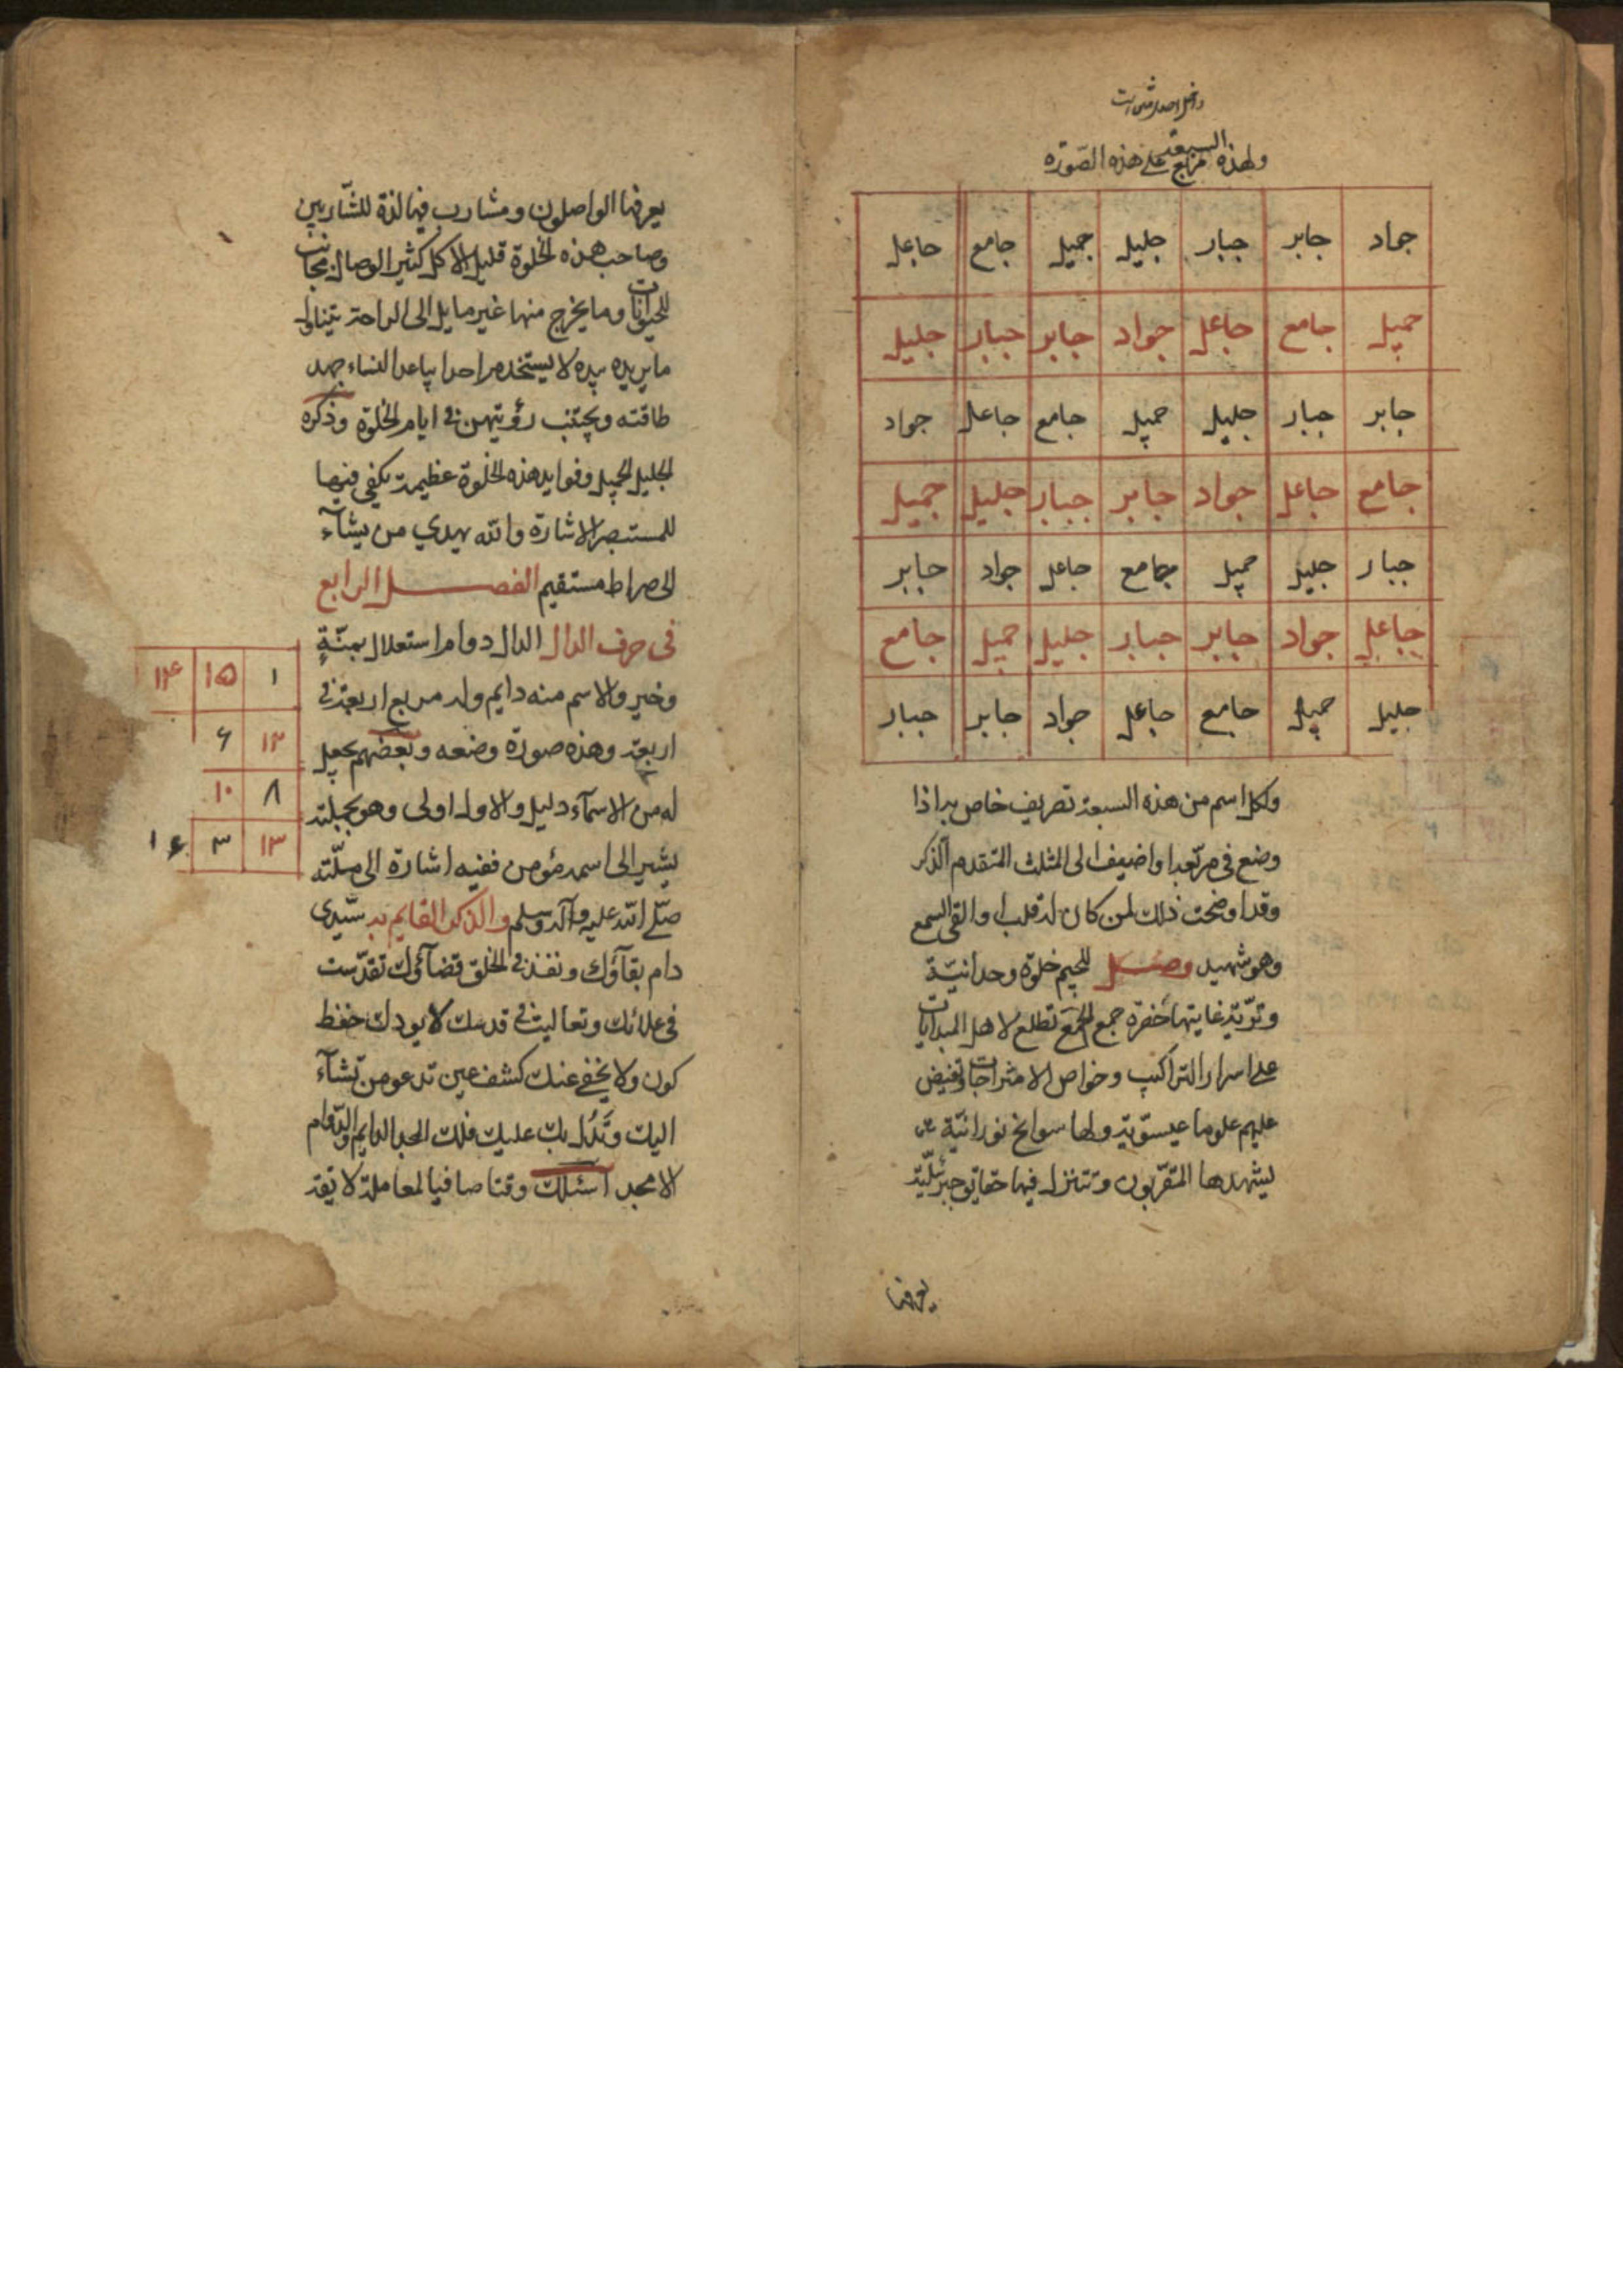 ولهذه السبعة مزاج على هذه الصورة
جواد جابر جبار جليل جميل جامع جاعل
جميل جامع جاعل جواد جابر جبار جليل
جابر جبار جليل جميل جامع جاعل جواد
جامع جاعل جواد جابر جبار جليل جميل
جبار جليل جميل جامع جاعل جواد جابر
جاعل جواد جابر جبار جليل جميل جامع
جليل جميل جامع جاعل جواد جابر جبار
ولكل اسم من هذه السبعة تصريف خاص به اذا
وضع فى مربعه او اضيف الى المثلث المتقدم الذكر
وقد اوضحت ذلك لمن كان له قلب او القى السمع
وهو شهيد وصل للجيم خلوة وحدانيّة
وتريّة غايتها حضرة جمع الجمع تطلع لاهل البدايات
على اسرار التراكيب وخواص الامتزاجات وتفيض
عليهم علوما عيسوّية ولها سوانح نورانيّة
يشهدها المقرّبون وتتنزل فيها حقايق جبرئليّة
يعرفها
يعرفها الواصلون ومشارب فيها لذة للشّاربين
وصاحب هذه الخلوة قليل الاكل كثير الوصال مجانب
للحيوانات وما يخرج منها غير مايل الى الراحة يتناول
ما يريده بيده لا يستخدم احدا يباعد النساء جهد
طاقته ويجتنب رؤيتهن فى ايام الخلوة وذكره
الجليل الجميل وفوايد هذه الخلوة عظيمة يكفى فيها
للمستبصر الاشارة والله يهدي من يشآء
الى صراط مستقيم الفصل الرابع
فى حرف الدال الدال دوام استعلال بمنّةٍ
وخير والاسم منه دايم وله مربع اربعة فى
اربعة وهذه صورة وضعه وبعضهم يجعل
له من الاسمآء دليل والاول اولى وهو بجملته
يشير الى اسمه مؤمن ففيه اشارة الى مسلّته
صلّى الله عليه وآله وسلم والذكر القايم به سيّدى
دام بقاؤك ونفذ فى الخلق قضآؤك تقدّست
فى علائك وتعاليت فى قدسك لا يودك حفظ
كون ولا يخفى عنك كشف عين تدعو من تشآء
اليك وتَدُل بك عليك فلك الحمد الدايم والدّوام
الامجد اسئلك وقتا صافيا لمعاملة لائقة
١ ١٥ ١٤
١٢ ۶
٨ ١٠
١٣ ٣